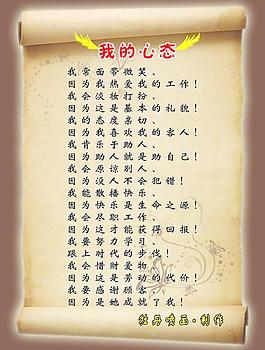 我的心态
我常面带微笑、
因为我热爱我的工作！
我会淡妆打扮、
因为这是基本的礼貌！
我的态度亲切、
因为我喜欢我的客人！
我肯乐于助人、
因为助人就是助自己！
我会原谅别人、
因为没人不会犯错！
我能散播快乐、
因为快乐是生命之源！
我会尽职工作、
因为这才能获得回报！
我要努力学习、
跟上时代的步伐！
我会惜财爱物、
因为这是劳动的代价！
我要感谢顾客、
因为是她成就了我！
牡丹喷画·制作